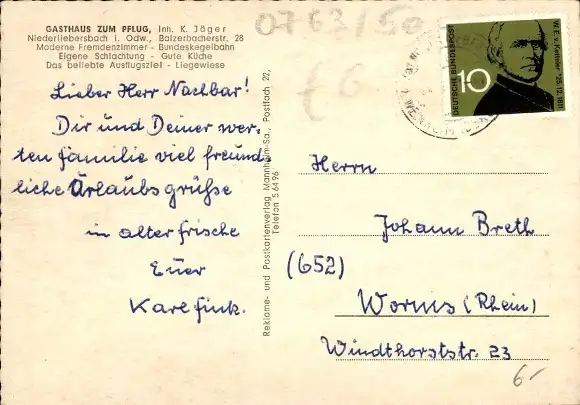 GASTHAUS ZUM PFLUG, Inh. K. Jäger
Niederliebersbach i. Odw., Balzerbacherstr. 28
Moderne Fremdenzimmer - Bundeskegelbahn
Eigene Schlachtung - Gute Küche
Das beliebte Ausflugsziel - Liegewiese
0763/50
Lieber Herr Nachbar!
Dir und Deiner wer-
ten Familie viel freund-
liche Urlaubsgrüße
in alter frische
Euer
Karl Fink.
Reklame- und Postkartenverlag Mannheim-Sa., Postfach 22,
Telefon 5 64 96
DEUTSCHE BUNDESPOST
10
W. E. v. Ketteler *25.12.1811
Herrn
Johann Breth
(652)
Worms (Rhein)
Windthorststr. 23
6.-